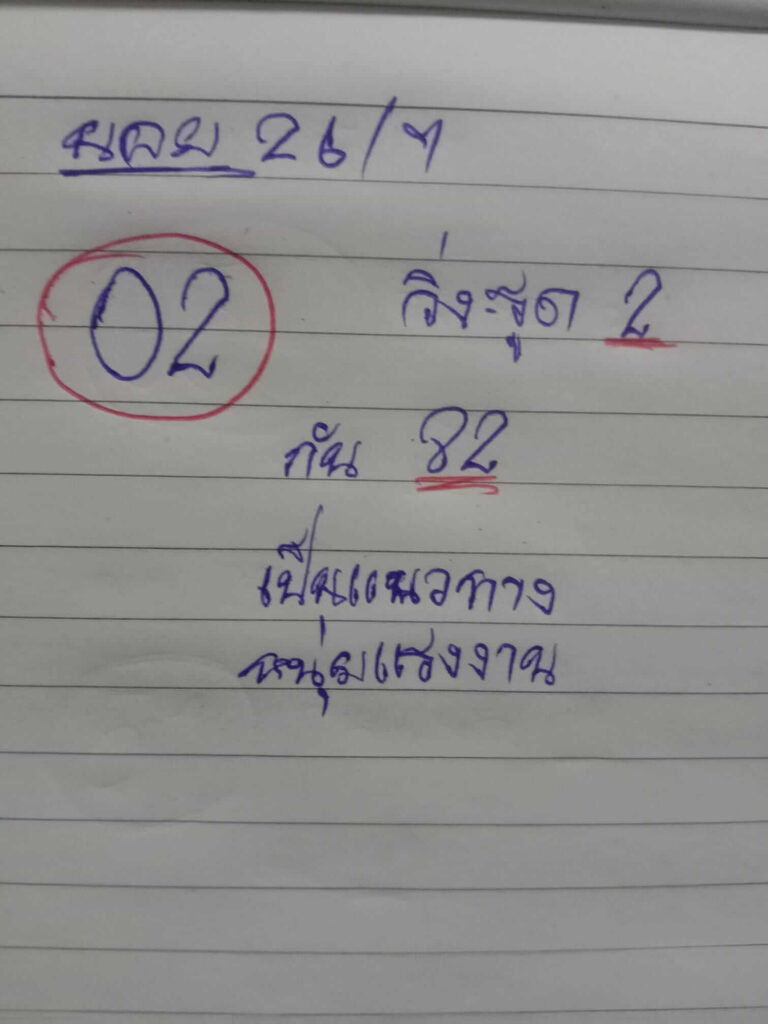 นอย 26/7
02 วิ่ง-รูด 2
กัน 82
เป็นแนวทาง
หนุ่มแรงงาน